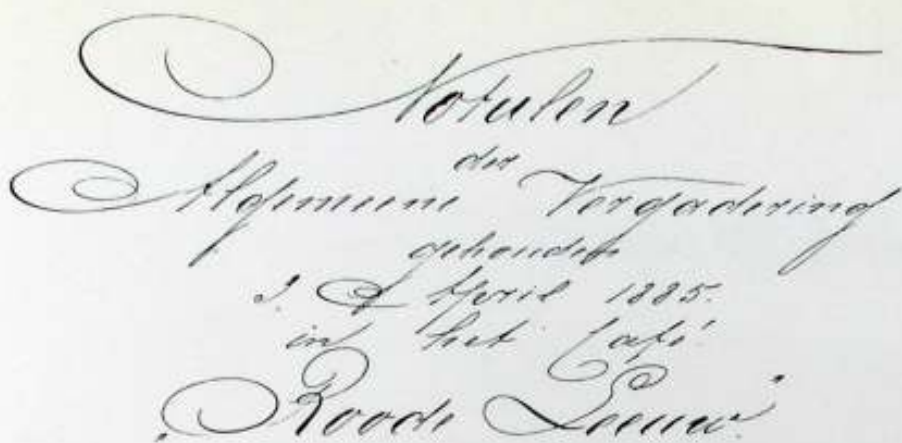 Notulen
der
Algemeene Vergadering
gehouden
April 1885.
in het Café
„Roode Leeuw”